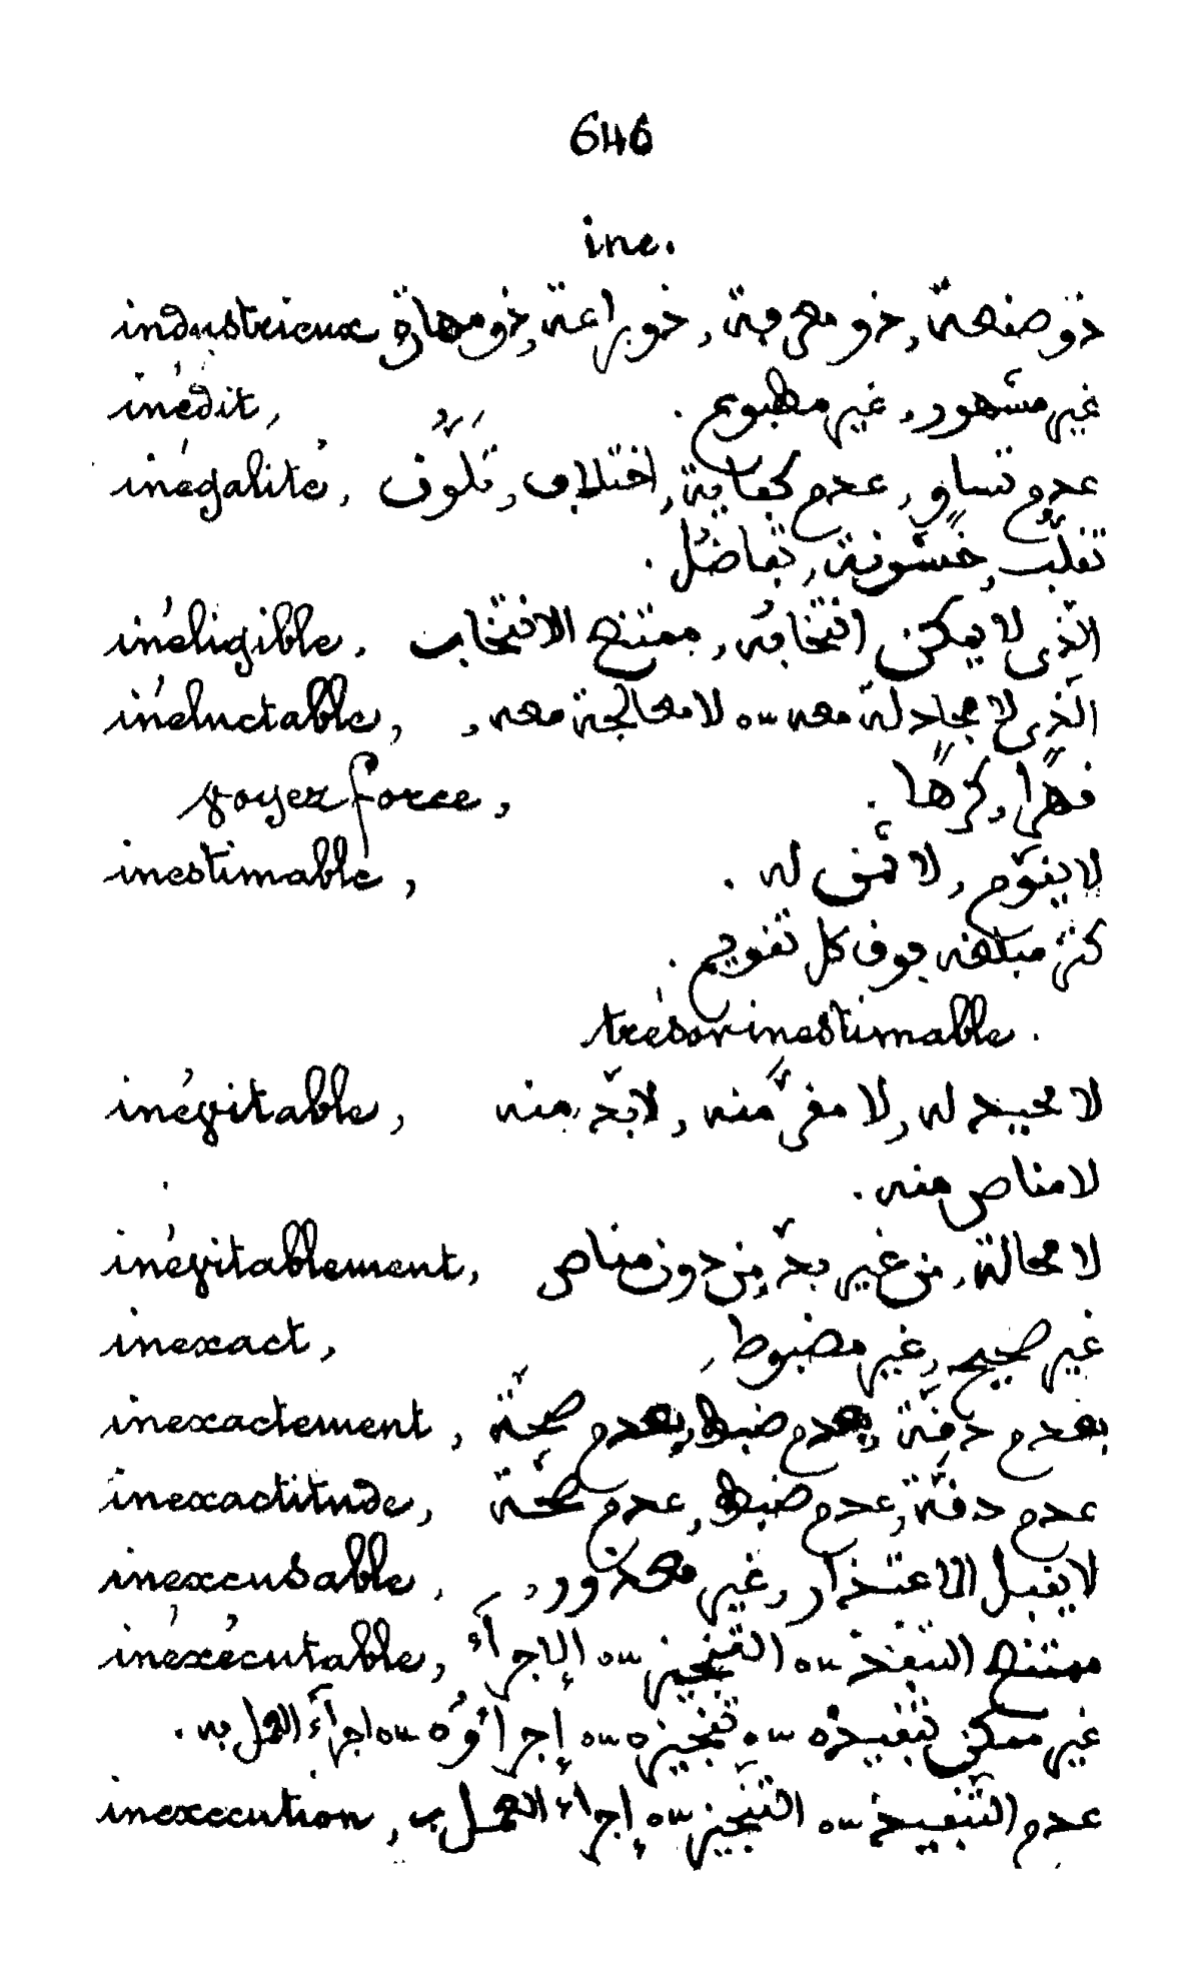 646
ine.
industrieux ذو صنعة, ذو معرفة, ذو براعة, ذو مهارة
inédit, غير مشهور, غير مطبوع.
inégalité, عدم تساوٍ, عدم كفاية, اختلاف, تلوّن
تقلّب, خشونة, تفاضُل.
inéligible, الّذى لا يمكن انتخابُه, ممتنع الانتخاب
inéluctable, الّذى لا مجادلة معه سه لا معالجة معه,
قهرًا, كرهًا. voyez force,
inestimable, لا يقوّم, لا ثمن له.
كنز مبلغه فوق كل تقويم.
trésor inestimable.
inévitable, لا محيد له, لا مفرّ منه, لا بدّ منه
لا مناص منه.
inévitablement, لا محالة, من غير بدّ, من دون مناص
inexact, غير صحيح, غير مضبوط,
inexactement, بعدم دقّة, بعدم ضبط, بعدم صحّة
inexactitude, عدم دقّة, عدم ضبط, عدم صحّة
inexcusable, لا يقبل الاعتذار, غير معذور,
inéxécutable, ممتنع التنفيذ سه التنجيز سه الإجرآء
غير ممكن تنفيذه سه تنجيزه سه إجراؤه سه اجرآء العمل به.
inexecution, عدم التّنفيذ سه التنجيز سه إجراء العمل ب